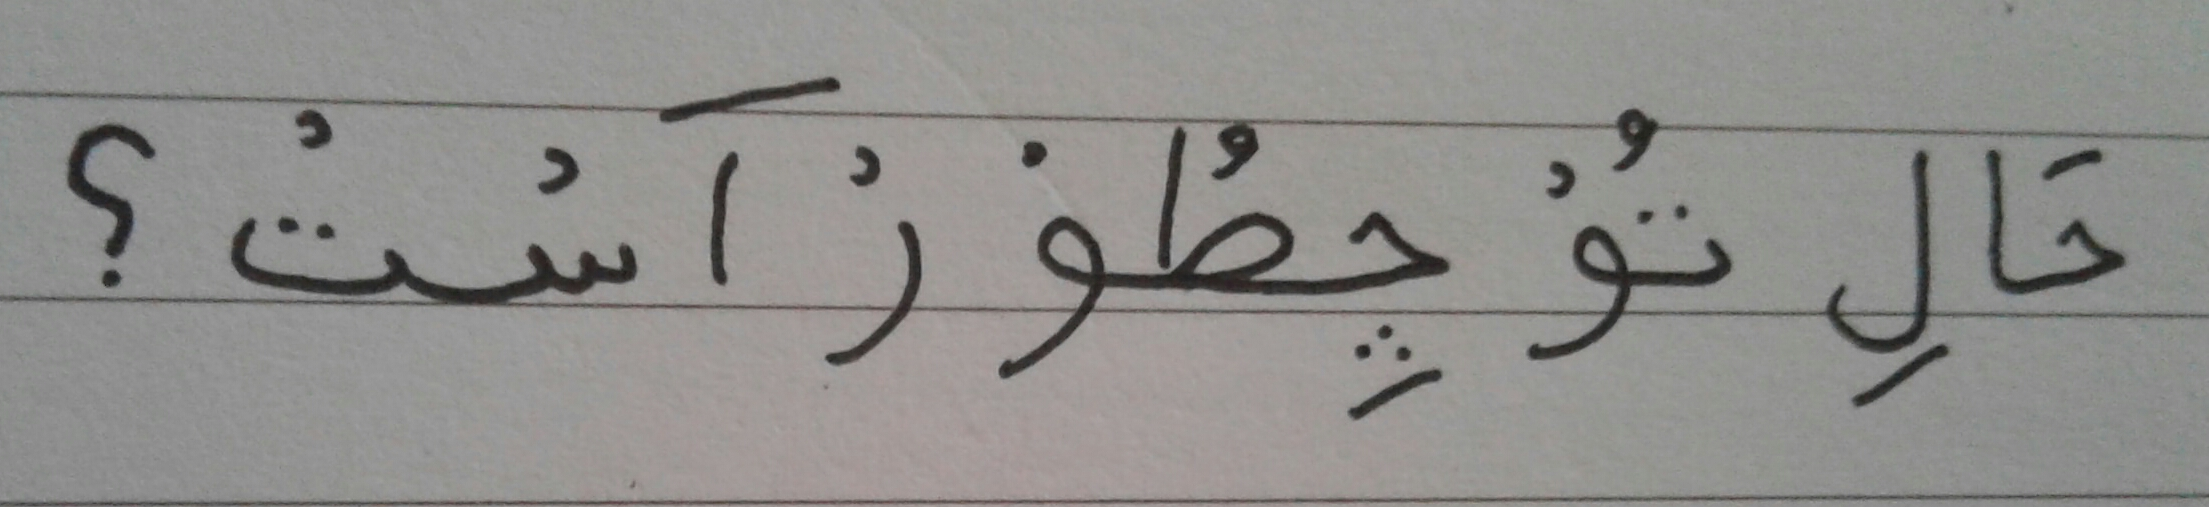 حَالِ تُوْ چِطُوْرْ اَسْتْ؟